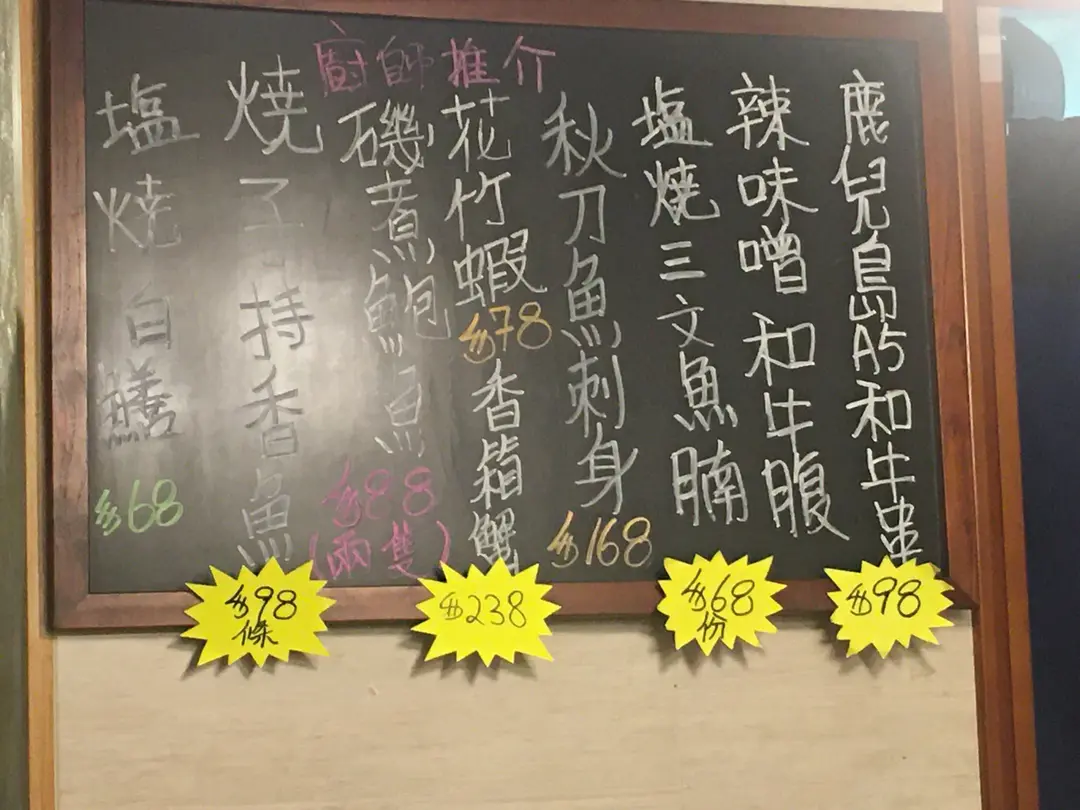 廚師推介
鹿兒島A5和牛串
$98
辣味噌和牛腹
塩燒三文魚腩
$68
份
秋刀魚刺身
$168
花竹蝦
$78
香箱蟹
$238
磯煮鮑魚
$88
(兩隻)
燒子持香魚
$98
條
塩燒白鱔
$68